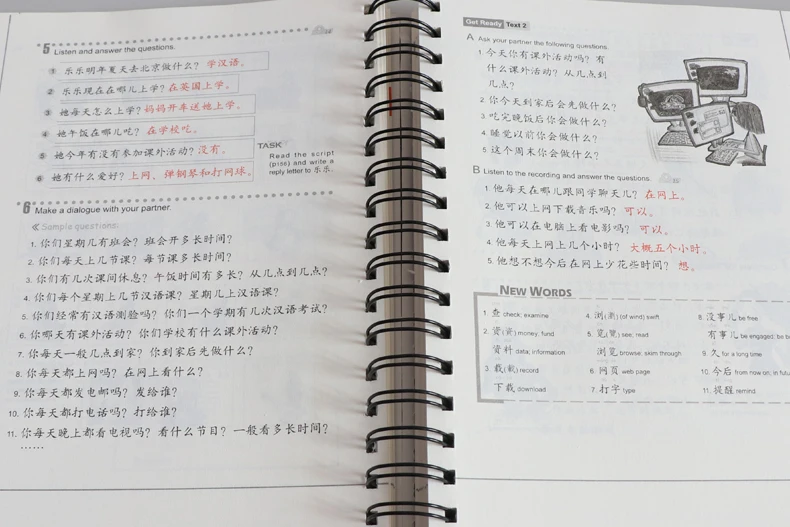 5 Listen and answer the questions.
① 乐乐明年夏天去北京做什么？学汉语。
② 乐乐现在在哪儿上学？在英国上学。
③ 她每天怎么上学？妈妈开车送她上学。
④ 她午饭在哪儿吃？在学校吃。
⑤ 她今年有没有参加课外活动？没有。
⑥ 她有什么爱好？上网、弹钢琴和打网球。
TASK
Read the script
(p155) and write a
reply letter to 乐乐.
6 Make a dialogue with your partner.
Sample questions:
1. 你们星期几有班会？班会开多长时间？
2. 你们每天上几节课？每节课多长时间？
3. 你们有几次课间休息？午饭时间有多长？从几点到几点？
4. 你们每个星期上几节汉语课？星期几上汉语课？
5. 你们经常有汉语测验吗？你们一个学期有几次汉语考试？
6. 你哪天有课外活动？你们学校有什么课外活动？
7. 你每天一般几点到家？你到家后先做什么？
8. 你每天都上网吗？在网上看什么？
9. 你每天都发电邮吗？发给谁？
10. 你每天都打电话吗？打给谁？
11. 你每天晚上都看电视吗？看什么节目？一般看多长时间？
……
Get Ready Text 2
A Ask your partner the following questions.
1. 今天你有课外活动吗？有
什么课外活动？从几点到
几点？
2. 你今天到家后会先做什么？
3. 吃完晚饭后你会做什么？
4. 睡觉以前你会做什么？
5. 这个周末你会做什么？
B Listen to the recording and answer the questions.
1. 他每天在哪儿跟同学聊天儿？在网上。
2. 他可以上网下载音乐吗？可以。
3. 他可以在电脑上看电影吗？可以。
4. 他每天上网上几个小时？大概五个小时。
5. 他想不想今后在网上少花些时间？想。
NEW WORDS
1. 查 check; examine
2. 资(資) money; fund
资料 data; information
3. 载(載) record
下载 download
4. 浏(瀏) (of wind) swift
5. 览(覽) see; read
浏览 browse; skim through
6. 网页 web page
7. 打字 type
8. 没事儿 be free
有事儿 be engaged; be bu
9. 久 for a long time
10. 今后 from now on; in futu
11. 提醒 remind